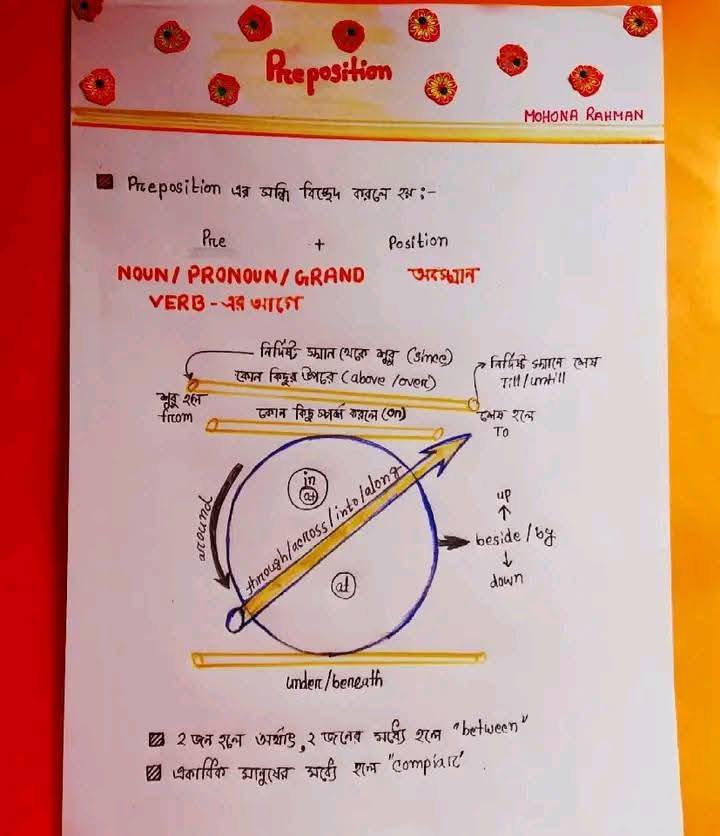 Preposition
MOHONA RAHMAN
Preposition এর সন্ধি বিচ্ছেদ করলে হয় :-
Pre + Position
NOUN / PRONOUN / GRAND অবস্থান
VERB - এর আগে
নির্দিষ্ট স্থান থেকে শুরু (since)
নির্দিষ্ট স্থানে শেষ
Till/untill
কোন কিছুর উপরে (above /over)
শুরু হলে
from
কোন কিছু স্পর্শ করলে (on)
শেষ হলে
To
in
at
around
through/across/into/along
at
up
beside / by
down
under/beneath
২ জন হলে অর্থাৎ, ২ জনের মধ্যে হলে "between"
একাধিক মানুষের মধ্যে হলে